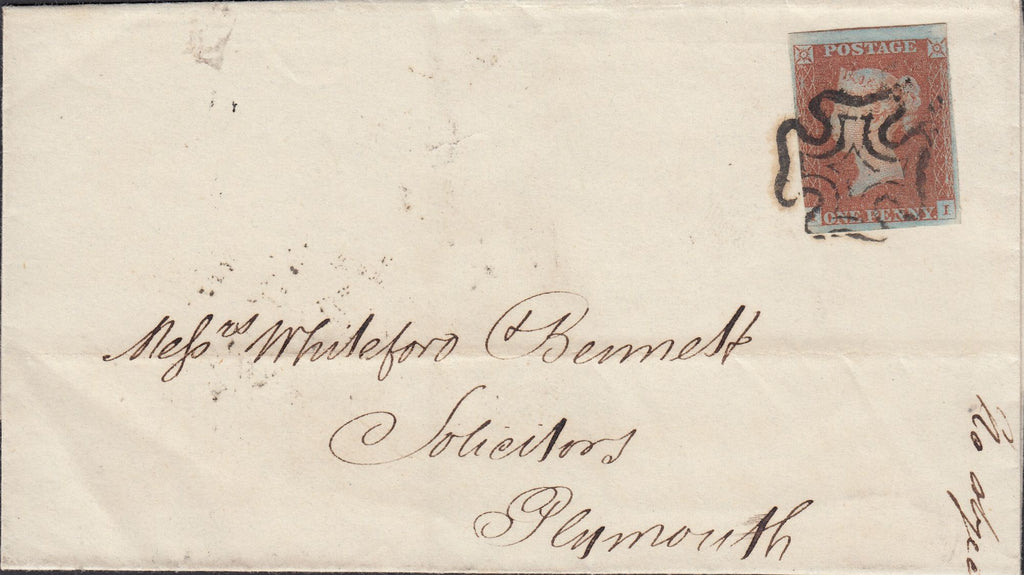 POSTAGE
ONE PENNY I
Messrs Whiteford & Bennett
Solicitors
Plymouth